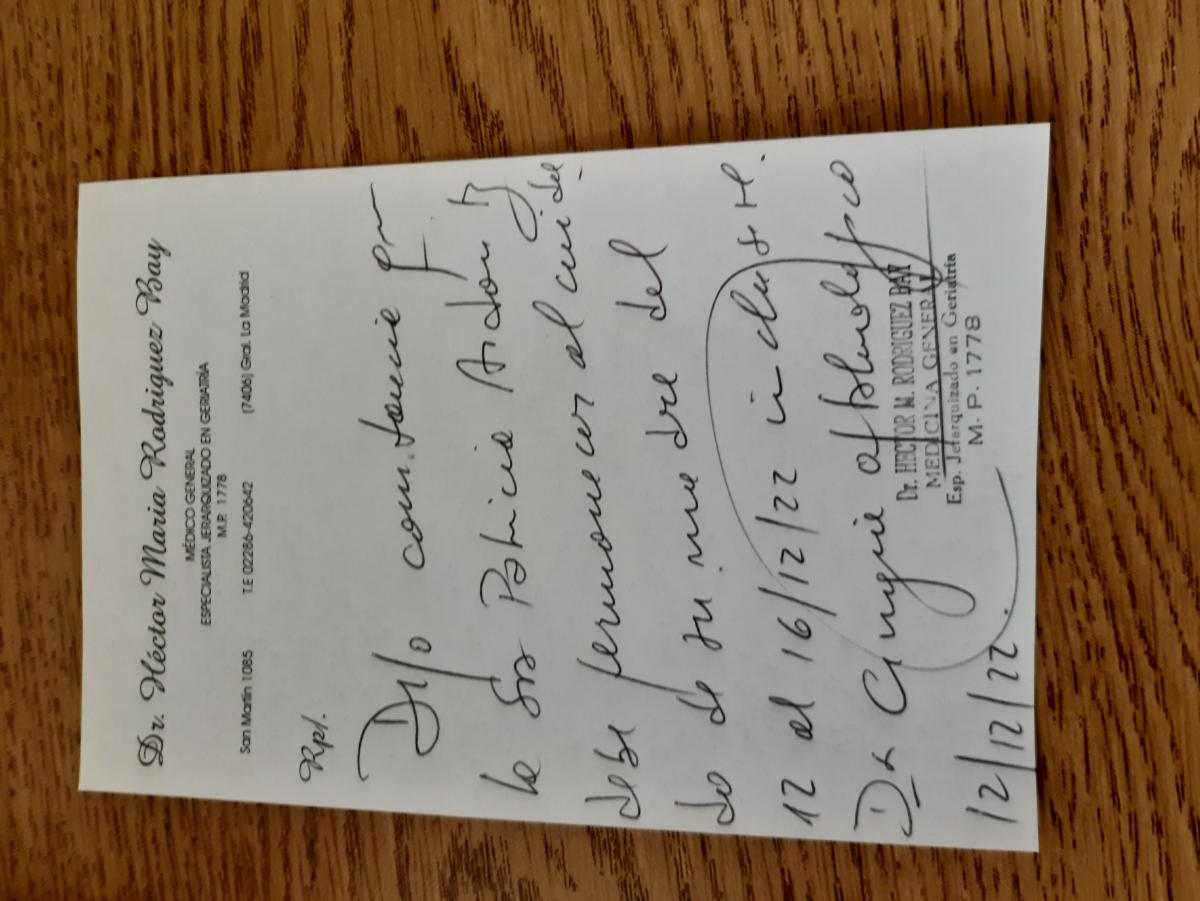 Dr. Héctor Maria Rodriguez Bay
MÉDICO GENERAL
ESPECIALISTA JERARQUIZADO EN GERIATRÍA
M.P. 1778
San Martín 1085 T.E 02286-420642 (7406) Gral. La Madrid
Rp/.
Dejo constancia que
la Sra Patricia
debe permanecer al cuida
do de su madre del
12 al 16/12/22 inclusive.
Dx Cirugia oftalmologica
12/12/22.
Dr. HECTOR M. RODRIGUEZ BAY
MEDICINA GENERAL
Esp. Jerarquizado en Geriatria
M. P. 1778